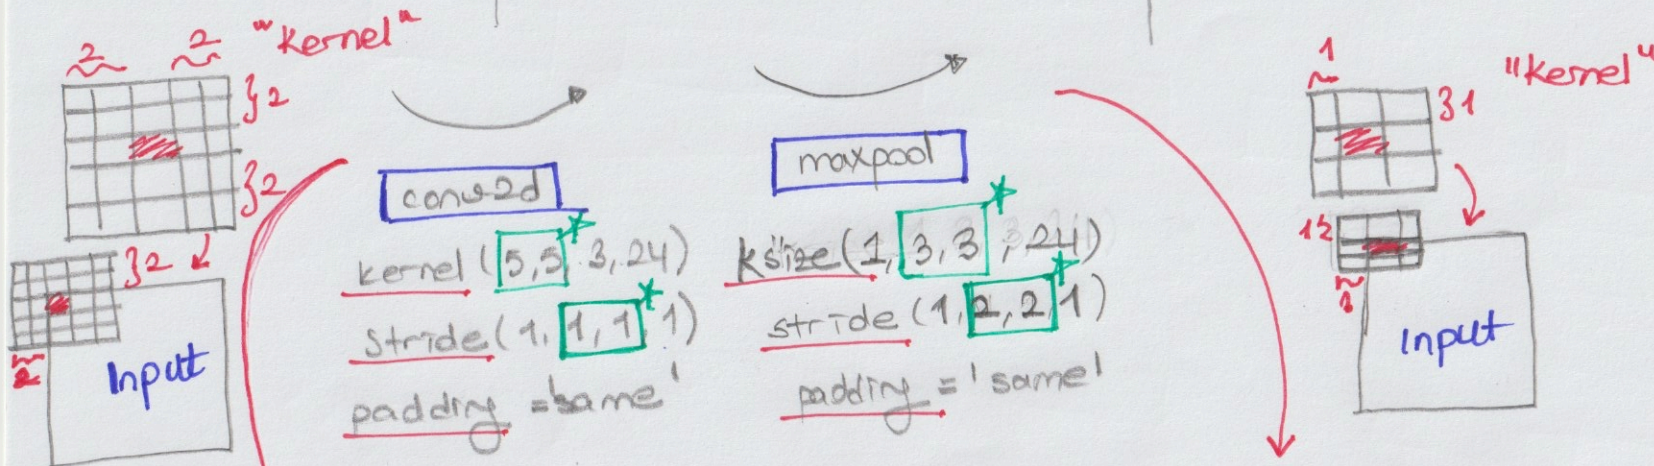 2 2 "Kernel"
}2
}2
}2
2
Input
conv2d
kernel (5,5, 3, 24)
stride (1, 1, 1, 1)
padding = 'same'
maxpool
ksize (1, 3, 3, , 24)
stride (1, 2, 2, 1)
padding = 'same'
1
"Kernel"
}1
Input